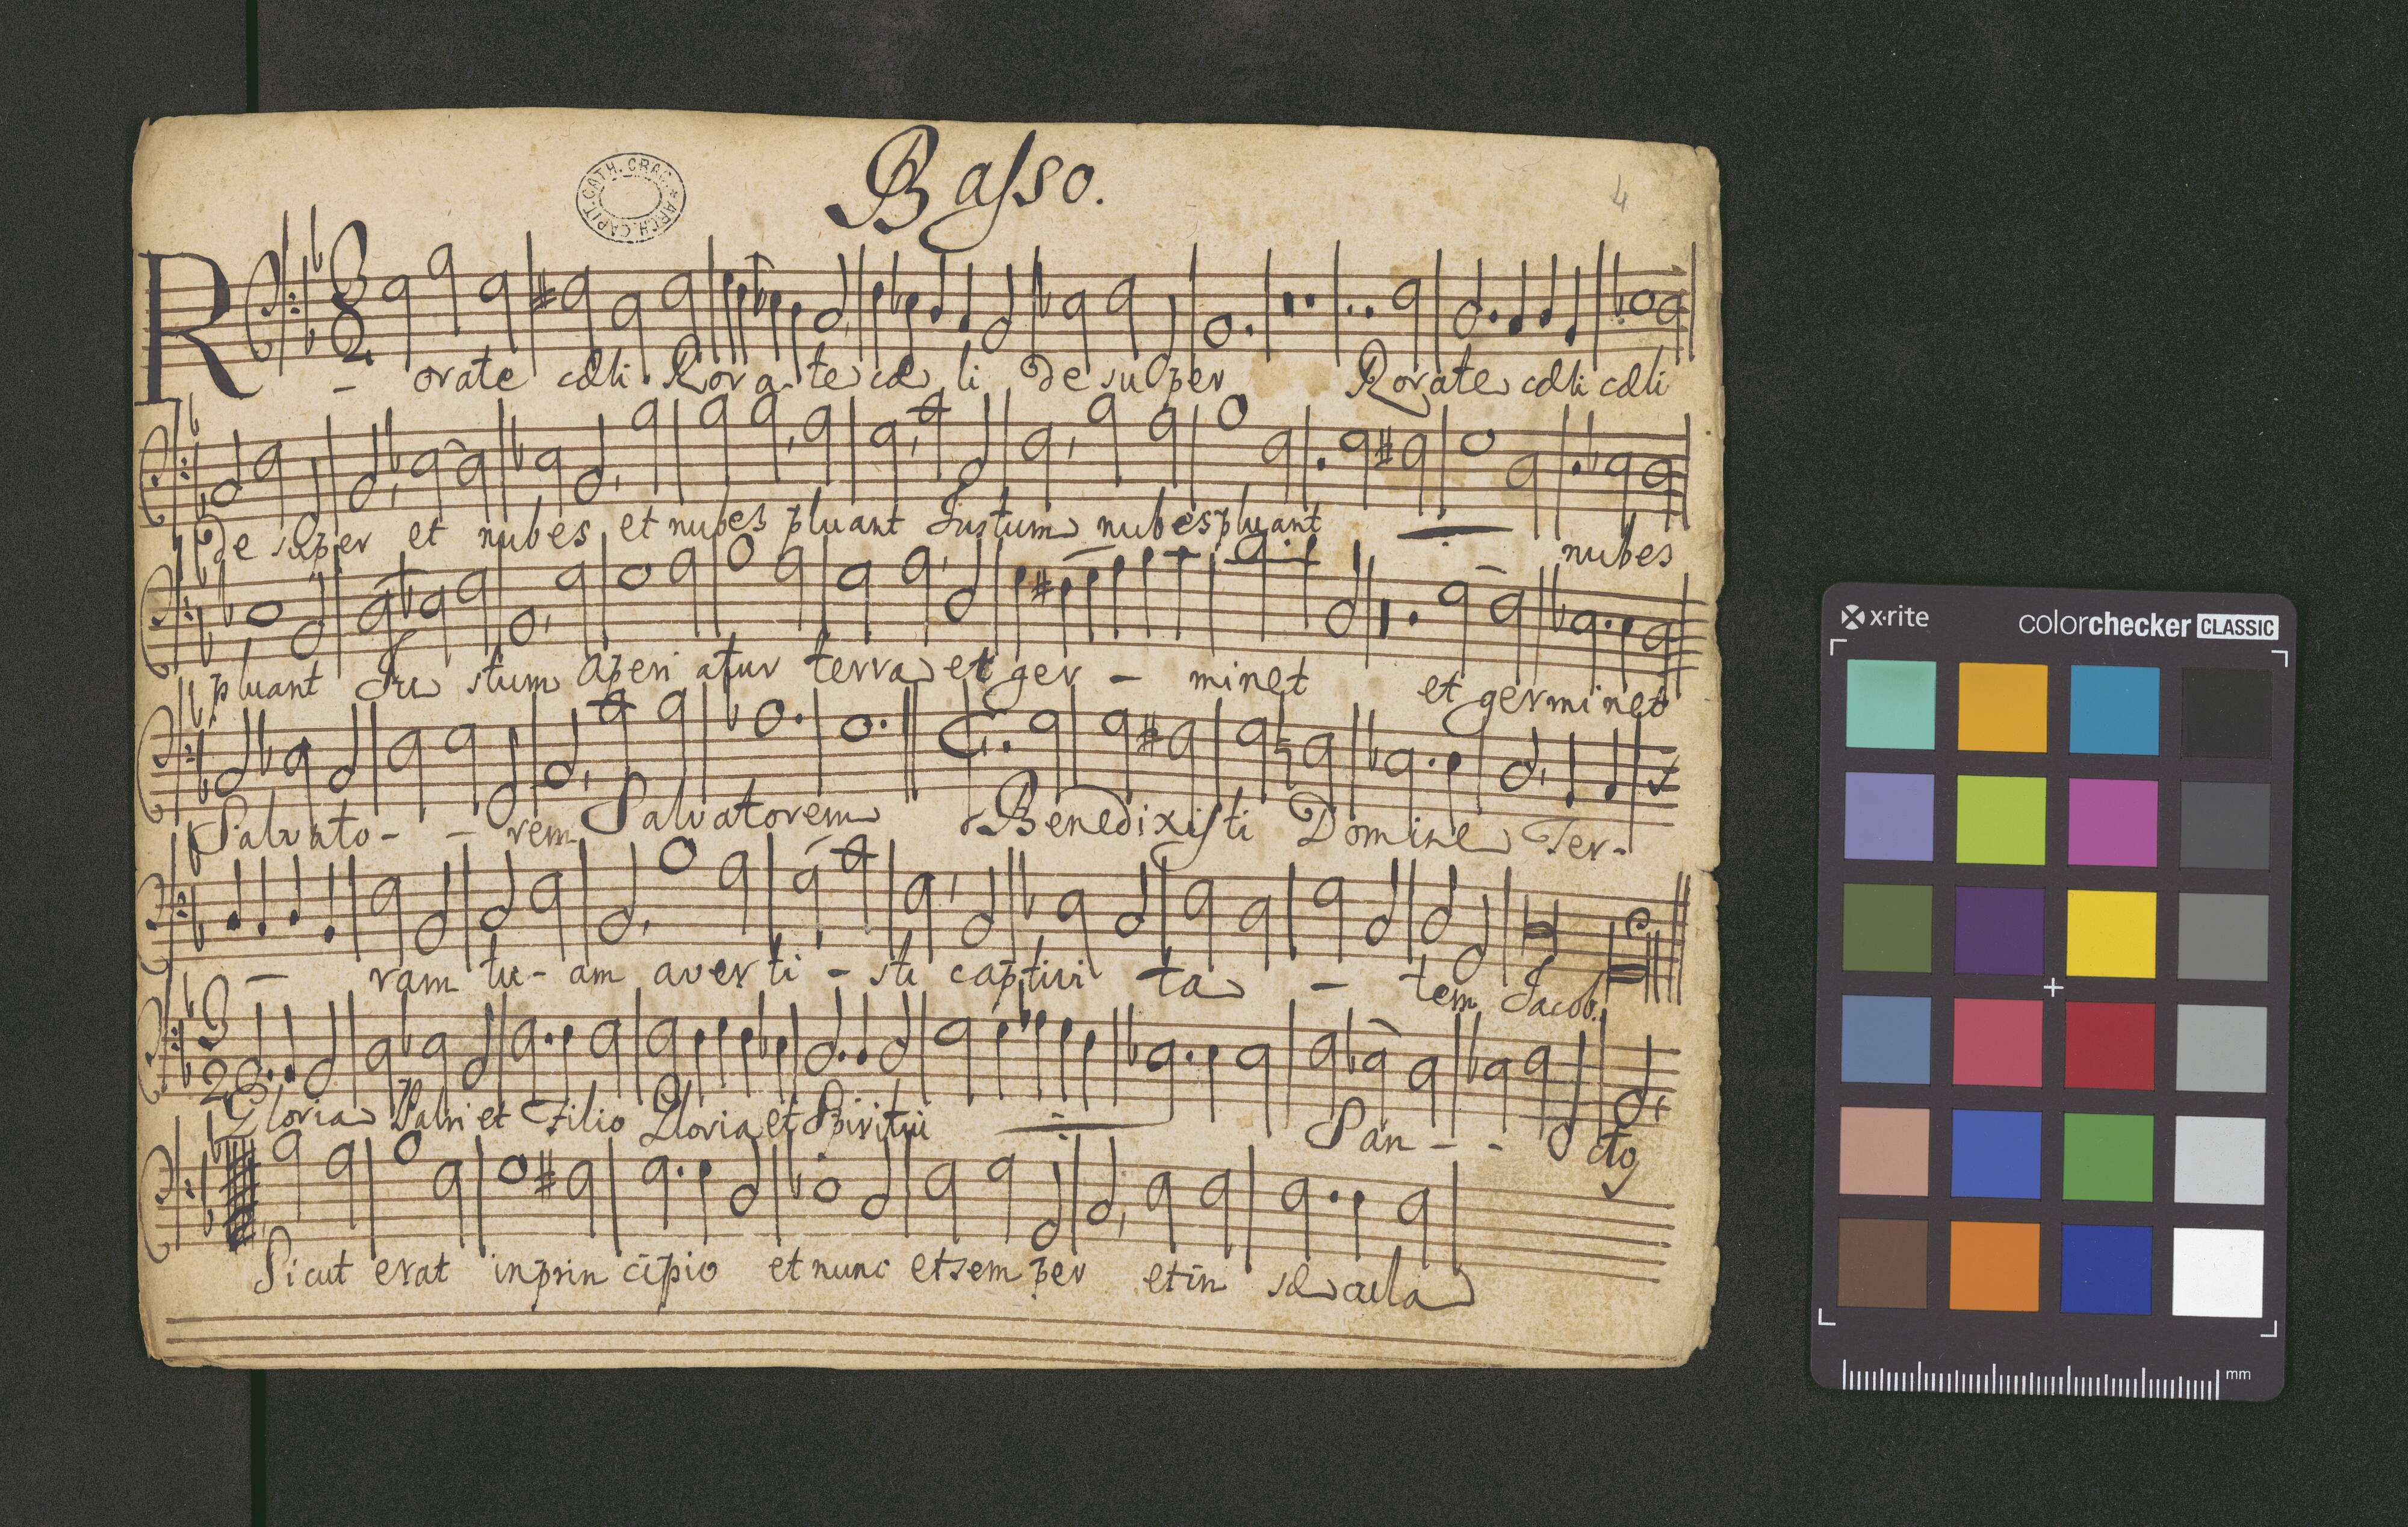 Basso.
ARCH. CAPIT. CATH. CRAC.
4
R - orate cœli. Rora-te cœ li de super Rorate cœli cœli
De super et nubes et nubes pluant Justum nubes pluant nubes
pluant Ju stum aperi atur terra et ger - minet et germinet
Salvato - - rem Salvatorem Benedixisti Domine Ter-
- ram tu- am averti - sti captivi ta - tem Jacob.
Gloria Patri et Filio Gloria et Spiritui San - - cto
Sicut erat in prin cipio et nunc et sem per et in sæ cula
x-rite
colorchecker CLASSIC
mm